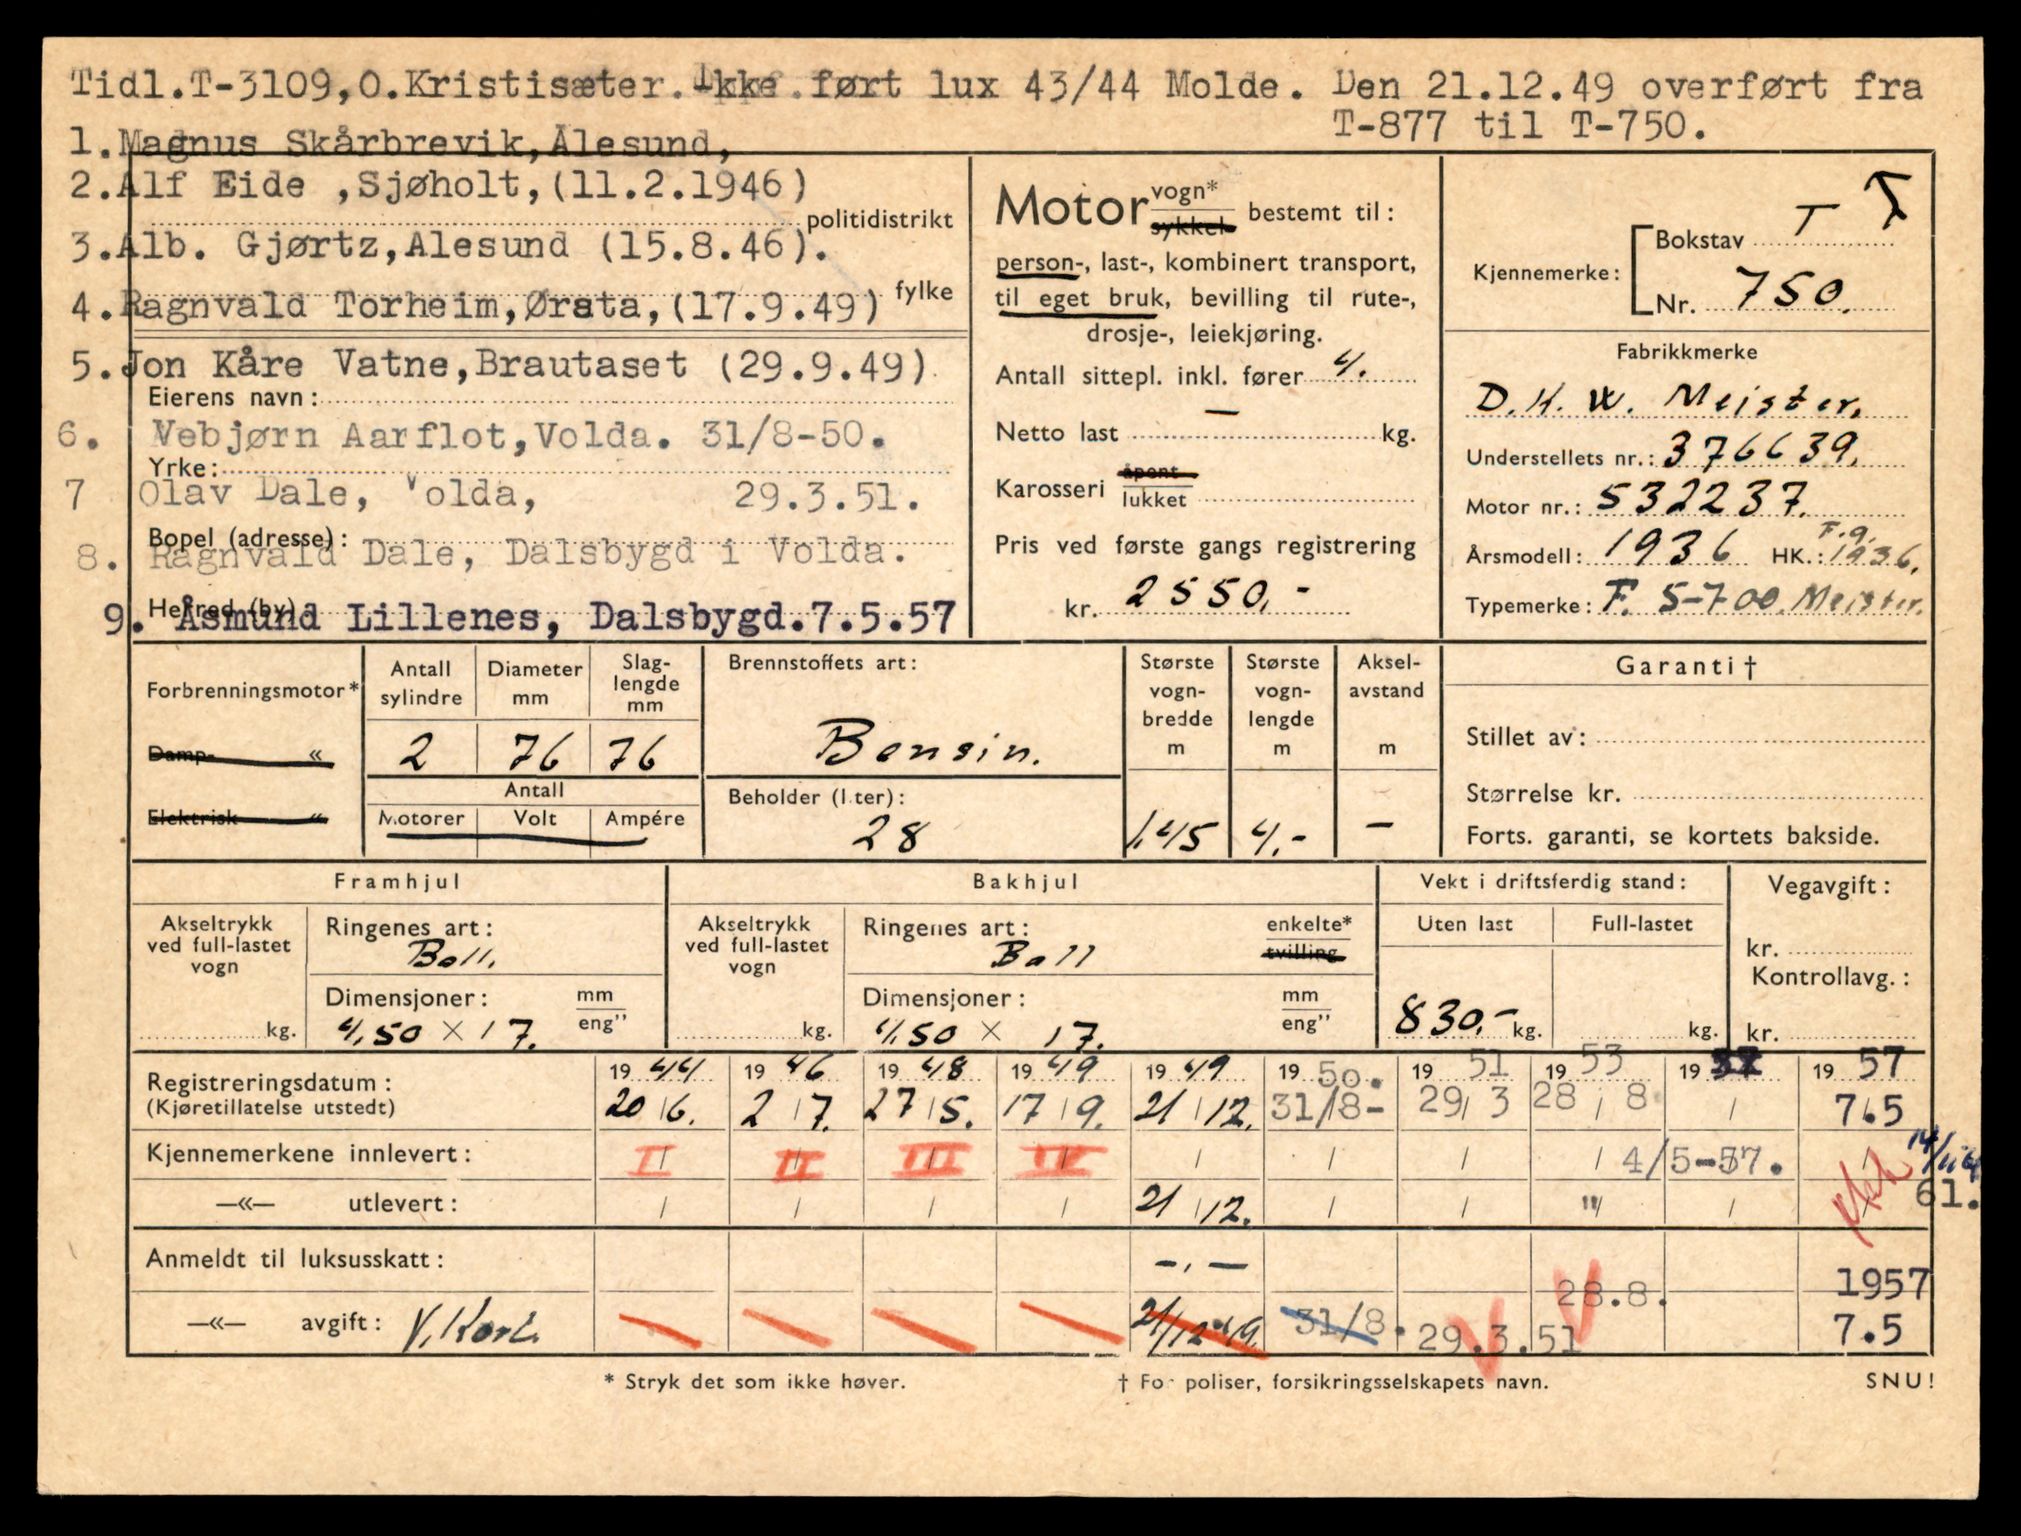 Tidl.T-3109,O.Kristisæter. Ikke ført lux 43/44 Molde. Den 21.12.49 overført fra
T-877 til T-750.
1.Magnus Skårbrevik,Ålesund,
2.Alf Eide ,Sjøholt,(11.2.1946)
politidistrikt
3.Alb. Gjørtz,Ålesund (15.8.46).
fylke
4.Ragnvald Torheim,Ørsta,(17.9.49)
5.Jon Kåre Vatne,Brautaset (29.9.49)
Eierens navn:
6. Vebjørn Aarflot,Volda. 31/8-50.
Yrke:
7 Olav Dale, Volda, 29.3.51.
Bopel (adresse):
8. Ragnvald Dale, Dalsbygd i Volda.
Herred (by)
9. Åsmund Lillenes, Dalsbygd.7.5.57
Motor vogn* sykkel bestemt til:
person-, last-, kombinert transport,
til eget bruk, bevilling til rute-,
drosje-, leiekjøring.
Antall sittepl. inkl. fører 4.
Netto last — kg.
Karosseri åpent lukket
Pris ved første gangs registrering
kr. 2550,-
Kjennemerke: Bokstav T T
Nr. 750.
Fabrikkmerke
D.K.W. Meister.
Understellets nr.: 376639.
Motor nr.: 532237.
Årsmodell: 1936 HK.: F.9. 1936.
Typemerke: F. 5-700 Meister.
Forbrenningsmotor*
Damp- «
Elektrisk «
Antall sylindre
Diameter mm
Slag-lengde mm
2 76 76
Antall
Motorer Volt Ampére
Brennstoffets art:
Bensin.
Beholder (liter):
28
Største vogn-bredde m
Største vogn-lengde m
Aksel-avstand m
1,45 4,- —
Garanti†
Stillet av:
Størrelse kr.
Forts. garanti, se kortets bakside.
Framhjul
Akseltrykk ved full-lastet vogn
kg.
Ringenes art:
Ball.
Dimensjoner: mm eng"
4,50 × 17.
Bakhjul
Akseltrykk ved full-lastet vogn
kg.
Ringenes art: enkelte* tvilling
Ball
Dimensjoner: mm eng"
4,50 × 17.
Vekt i driftsferdig stand:
Uten last Full-lastet
830.- kg. kg.
Vegavgift:
kr.
Kontrollavg.:
kr.
Registreringsdatum: 1944 1946 1948 1949 1949 1950. 1951 1953 19 1957
(Kjøretillatelse utstedt) 20/6. 2/7. 27/5. 17/9. 21/12. 31/8- 29/3 28/8. / 7.5
Kjennemerkene innlevert: I II III IV / / / / 4/5-57. 14/11
—«— utlevert: / / / / 21/12. / / " / 61.
Anmeldt til luksusskatt: -.- 1957
—«— avgift: V. Kort. 21/12-49. 31/8. 29.3.51 28.8. 7.5
* Stryk det som ikke høver.
† For poliser, forsikringsselskapets navn.
SNU!